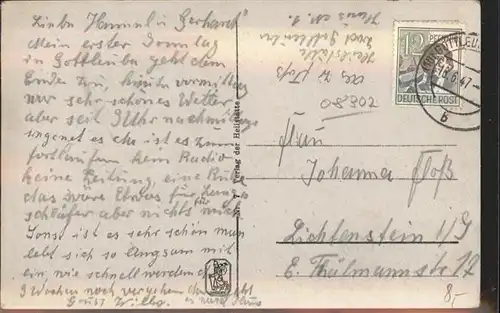 Liebe Hummel u Gerhard"
Mein erster Sonntag
in Gottleuba geht dem
Ende zu, heute vormittag
war sehr schönes Wetter
aber seit Uhr nachmittags
es ist es zum
fortlaufen kein Radio
keine Zeitung, eine Ruhe
das wäre Etwas für Lang-
schläfer aber nichts für mich
Sonst ist es sehr schön man
lebt sich so langsam mit
ein, wie schnell werden die
3 Wochen noch vergehen dann geht
es nach Haus
Gruss Willy.
Nr. 7 Verlag der Heilstätte
Abs W Floß
Heilstätte
Bad Gottleuba
Haus Nr 1.
08302
12 PFENNIG
DEUTSCHE POST
GOTTLEUBA
6.47
b
Frau
Johanna Floß
Lichtenstein i/S
E. Thälmannstr 17
8,-